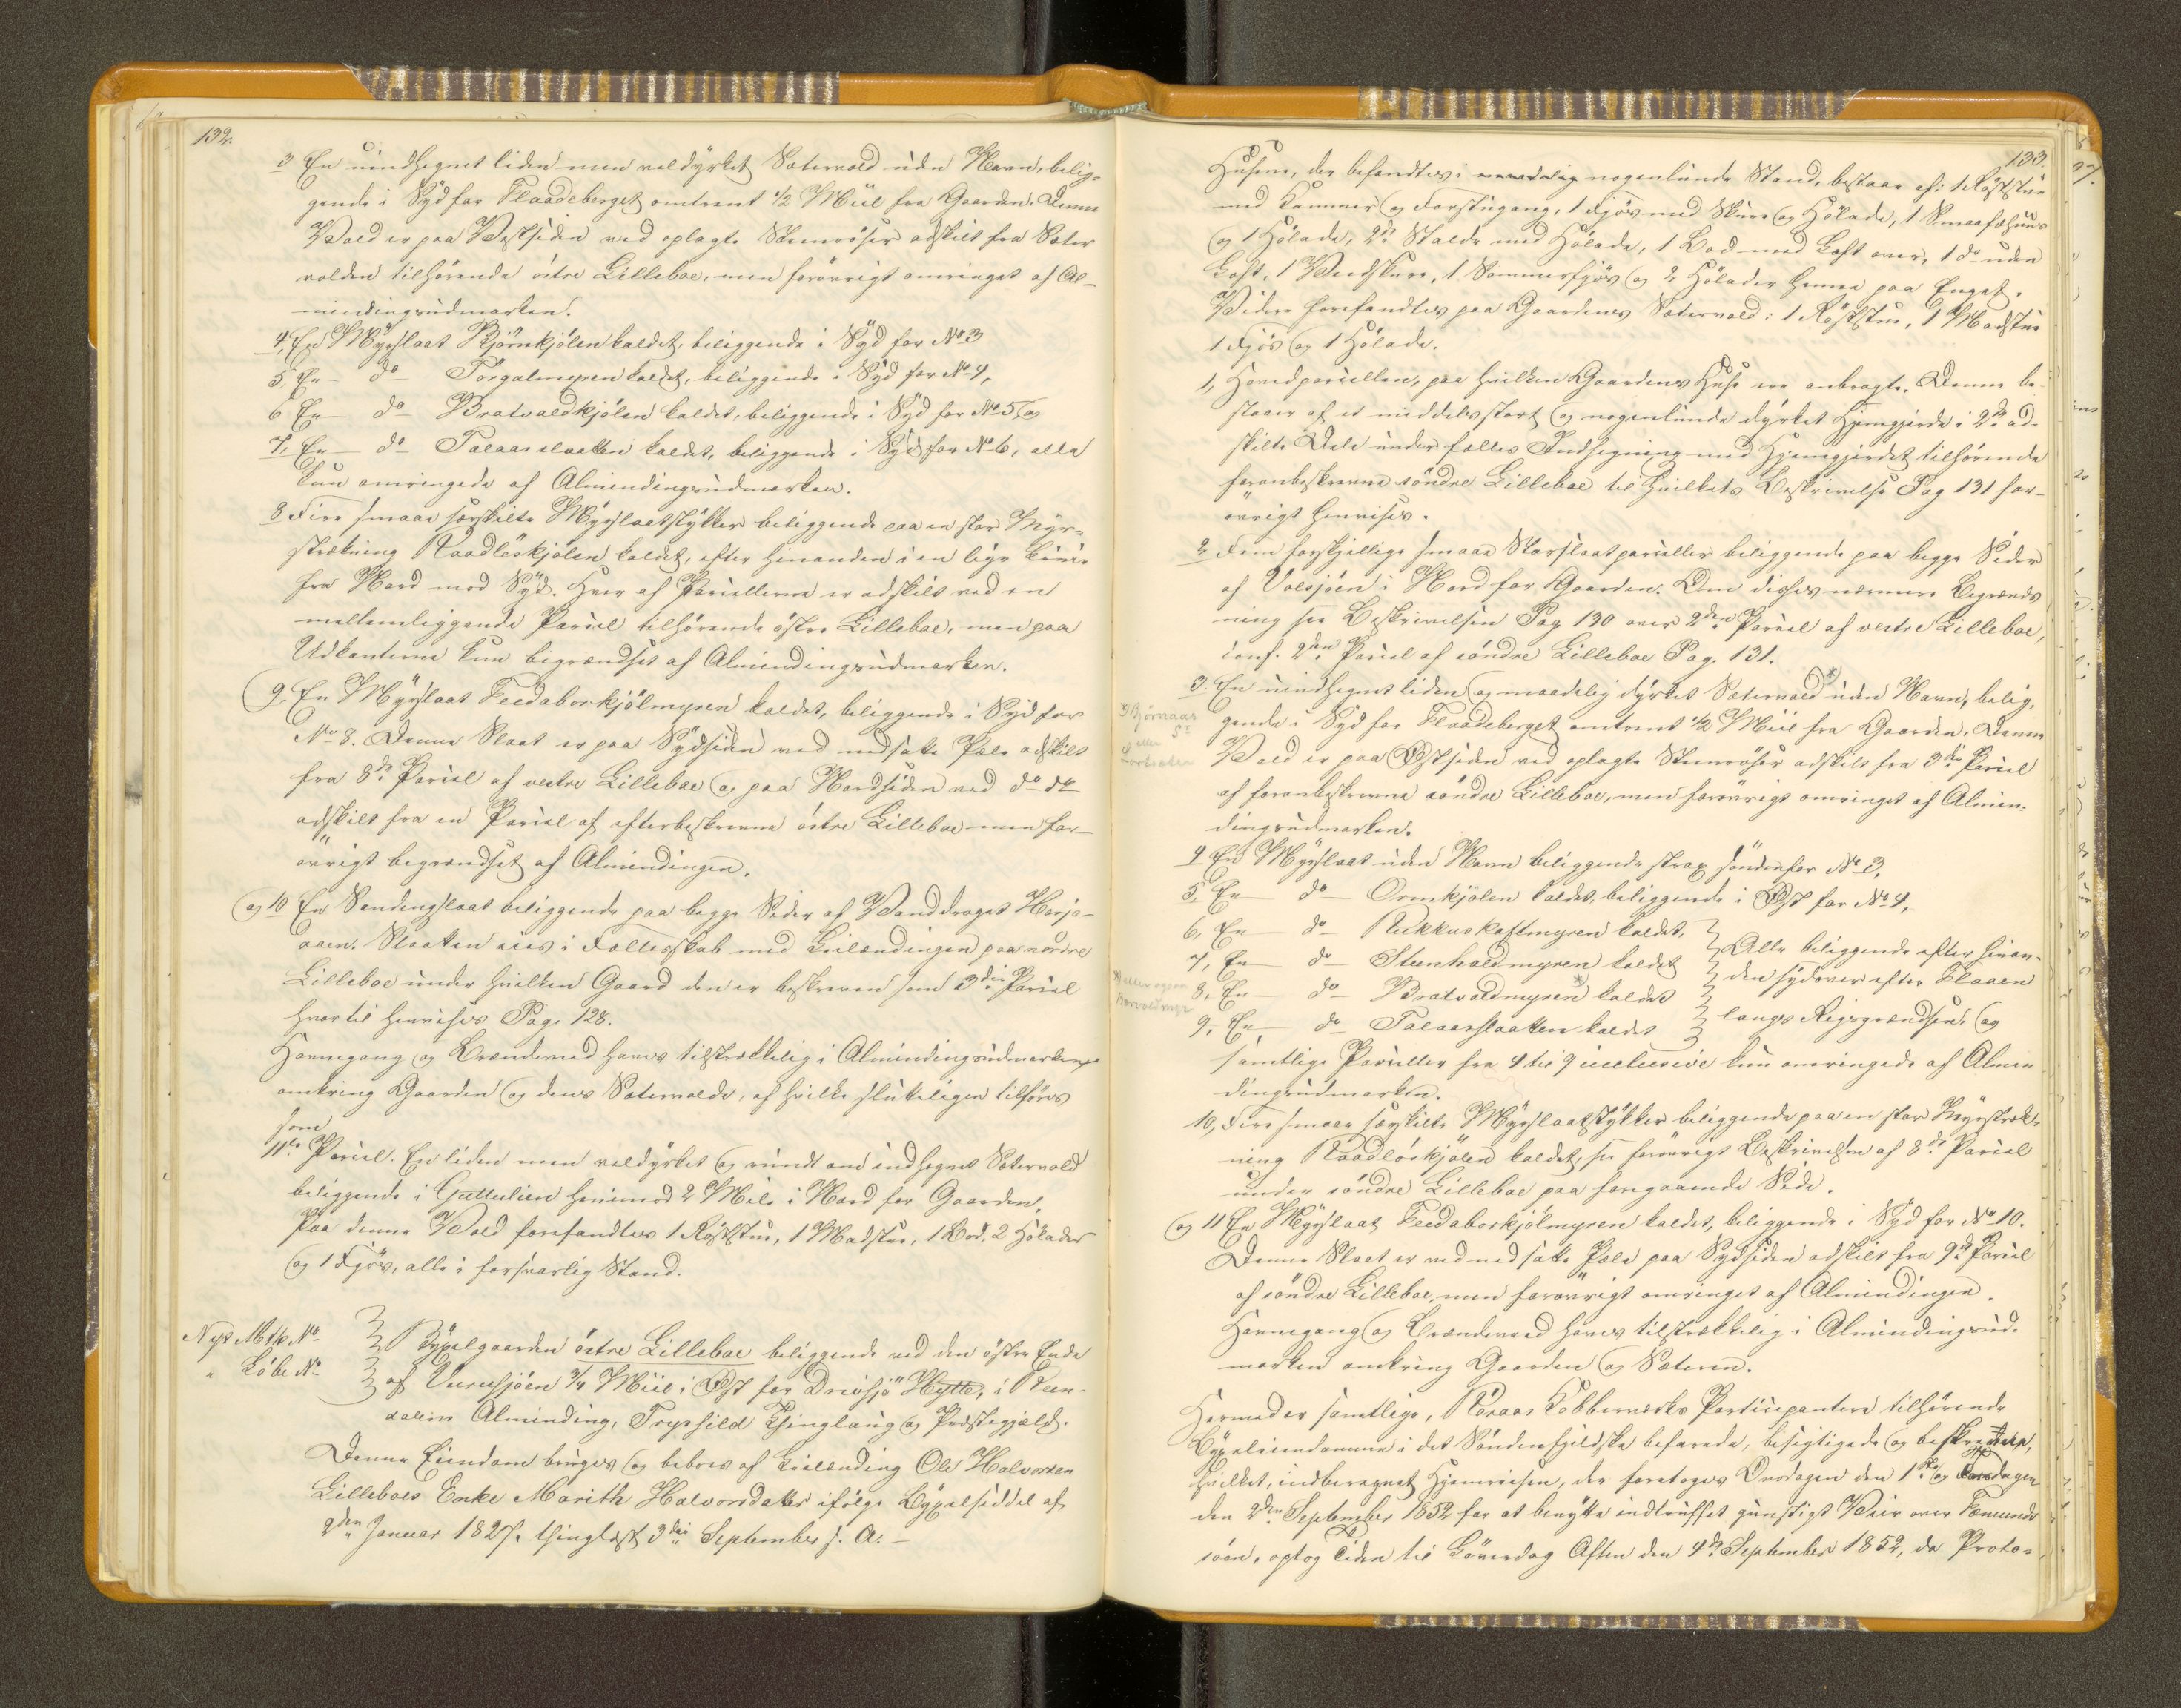 132.
3 En uindhegnet liden men veldyrket Sætervold uden Navn, belig-
gende i Syd for Flaadeberget omtrent 1/2 Miil fra Gaarden. Denne
Vold er paa Vestsiden ved oplagte Steenröser adskilt fra Sæter
volden tilhörende östre Lilleboe, men forövrigt omringet af Al-
mindingsudmarken.
4, En Myrslaat Björnkjölen kaldet, beliggende i Syd for No 3
5, En – do – Törgalmyren kaldet, beliggende i Syd for No 4,
6 En – do Bratvaldkjölen kaldet, beliggende i Syd for No 5, og
7, En – do – Talaasslaatten kaldet, beliggende i Syd for No 6, alle
kun omringede af Almindingsudmarken.
8 Fire smaae særskilte Myrslaatstykker beliggende paa en stor Myr-
strækning Raadlöskjölen kaldet, efter hinanden i en lige Linie
fra Nord mod Syd. Hver af Parcellerne er adskilt ved en
mellemliggende Parcel tilhörende östre Lilleboe, men paa
Udkanterne kun begrændset af Almindingsudmarken.
9, En Myrslaat Feedaborkjölmyren kaldet, beliggende i Syd for
No 8. Denne Slaat er paa Sydsiden ved nedsatte Pæle adskilt
fra 8de Parcel af vestre Lilleboe og paa Nordsiden ved do do
adskilt fra en Parcel af efterbeskrevne östre Lilleboe men for-
övrigt begrændset af Almindingen.
og 10 En Sendingslaat beliggende paa begge Sider af Vanddraget Horjo-
aaen. Slaatten eies i Fællesskab med Leilændingen paa nordre
Lilleboe under hvilken Gaard den er beskreven som 3die Parcel
hvortil henvises Pag. 128.
Havnegang og Brændeved haves tilstrækkelig i Almindingsudmarken
omkring Gaarden og dens Sætervolde, af hvilke sluteligen tilföres
som
11te Parcel. En liden men veldyrket og rundt om indhegnet Sætervold
beliggende i Guttulien henimod 2 Mile i Nord for Gaarden,
Paa denne Vold forefandtes 1 Röststue, 1 Madstue, 1 Bod, 2 Hölader
og 1 Fjös, alle i forsvarlig Stand.
Nyt Mtk No
" Löbe No
Bÿxelgaarden östre Lilleboe beliggende ved den östre Ende
af Vurrusjöen 3/4 Miil i Öst for Drevsjö Hytte, i Reen-
dalens Alminding, Trysild Thinglaug og Præstegjæld.
Denne Eiendom bruges og beboes af Leilænding Ole Halvorsen
Lilleboes Enke Marith Halvorsdatter ifölge Byxelseddel af
2den Januar 1827, thinglæst 3die September s. A. –
133.
Husene, der befandtes i nogenlunde Stand, bestaae af: 1 Röststue
med Kammer og Forstugang, 1 Fjös med Skure og Hölade, 1 Smaafæhuus
og 1 Hölade, 2de Stalde med Hölade, 1 Bod med Loft over, 1 do uden
Loft, 1 Vedskure, 1 Sommerfjös og 2 Hölader henne paa Enget.
Videre forefandtes paa Gaardens Sætervold: 1 Röststue, 1 Madstue
1 Fjös og 1 Hölade.
1, Hovedparcellen, paa hvilken Gaardens Huse ere anbragte. Denne be-
staaer af et middelsstort og nogenlunde dyrket Hjemgjerde i 2de ad-
skilte Dele under fælles Indhegning med Hjemgjerdet tilhörende
foranbeskrevne söndre Lilleboe til hvilkets Beskrivelse Pag 131 for-
övrigt henvises.
2 Fem forskjellige smaae Storslaatparceller beliggende paa begge Sider
af Volsjöen i Nord for Gaarden. Om disses nærmere Begrænds
ning see Beskrivelsen Pag 130 over 2den Parcel af vestre Lilleboe,
conf. 2den Parcel af söndre Lilleboe Pag. 131.
3. En uindhegnet liden og maadelig dyrket Sætervold* uden Navn, belig-
gende i Syd for Flaadeberget omtrent 1/2 Miil fra Gaarden. Denne
Vold er paa Östsiden ved oplagte Steenröser adskilt fra 3die Parcel
af foranbeskrevne söndre Lilleboe, men forövrigt omringet af Almin-
dingsudmarken.
Björnaas
eller
4 En Myrslaat uden Navn beliggende strax söndenfor No 3,
5, En – do – Ormkjölen kaldet, beliggende i Öst for No 4,
6, En – do Rukkuskaftmyren kaldet,
7, En – do – Steenhaldmyren kaldet
8, En – do – Bratvaldmyren* kaldet
9, En – do – Talaasslaatten kaldet
Alle beliggende efter hinan-
den sydover efter Flaaen
langs Rigsgrændsen, og
samtlige Parceller fra 4 til 9 inclusive kun omringede af Almin
dingsudmarken.
10, Fire smaae særskilte Myrslaatstykker beliggende paa en stor Myrstræk-
ning Raadlöskjölen kaldet, see forövrigt Beskrivelsen af 8de Parcel
under söndre Lilleboe paa foregaaende Side.
og 11 En Myrslaat Feedaborkjölmyren kaldet, beliggende i Syd for No 10.
Denne Slaat er ved nedsatte Pæle paa Sydsiden adskilt fra 9de Parcel
af söndre Lilleboe, men forövrigt omringet af Almindingen.
Havnegang og Brændeved haves tilstrækkelig i Almindingsud-
marken omkring Gaarden og Sæteren.
Hermed er samtlige, Röraas Kobberværks Participantere tilhörende
Byxeleiendomme i det Söndenfjeldske befarede, besigtigede og beskrevne,
hvilket, indberegnet Hjemreisen, der foretoges Onsdagen den 1ste og Torsdagen
den 2den September 1852 for at benytte indtruffet gunstigt Veir over Fæmund-
söen, optog Tiden til Löverdag Aften den 4de September 1852, da Proto-